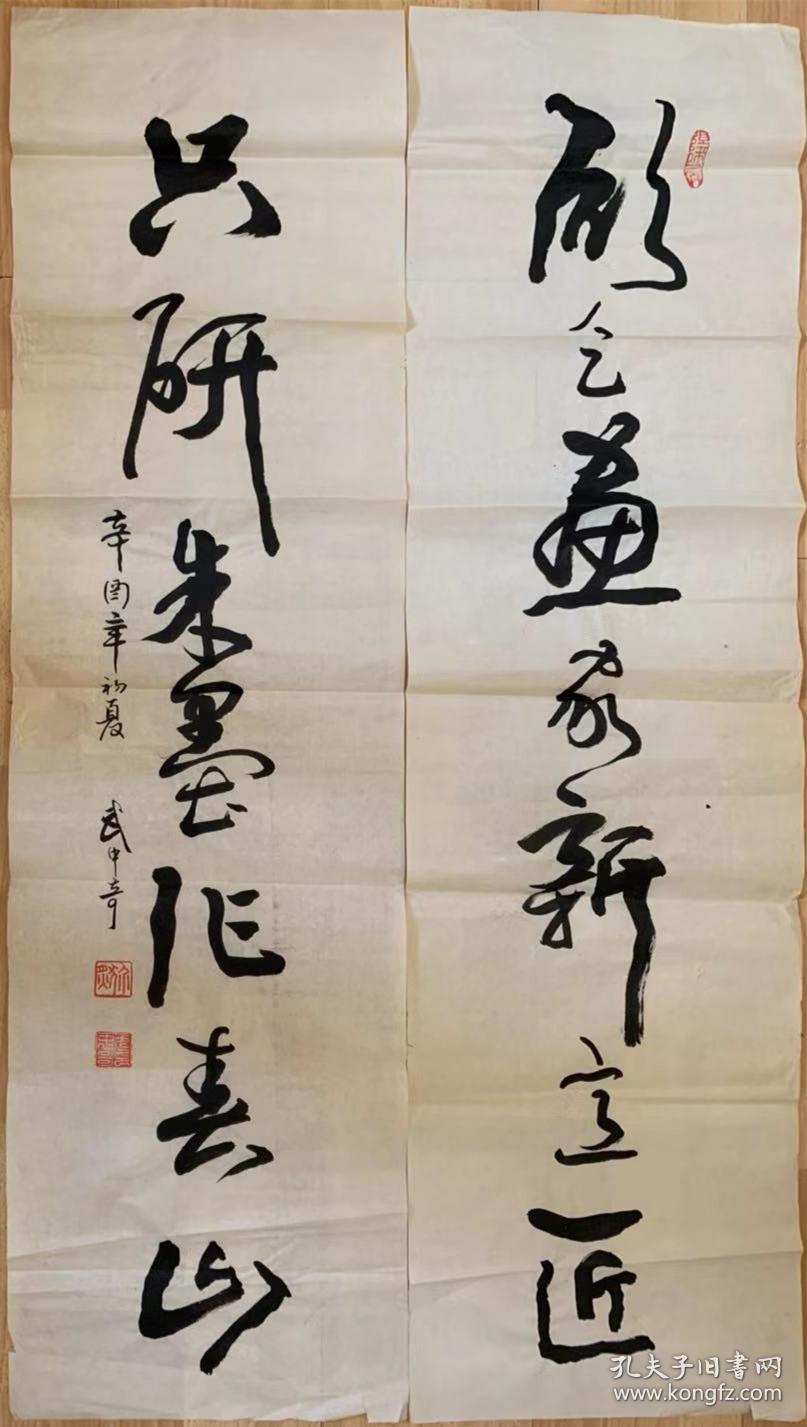 願乞畫家新意匠
只研朱墨作春山
辛酉年初夏 武中奇
孔夫子旧书网
www.kongfz.com